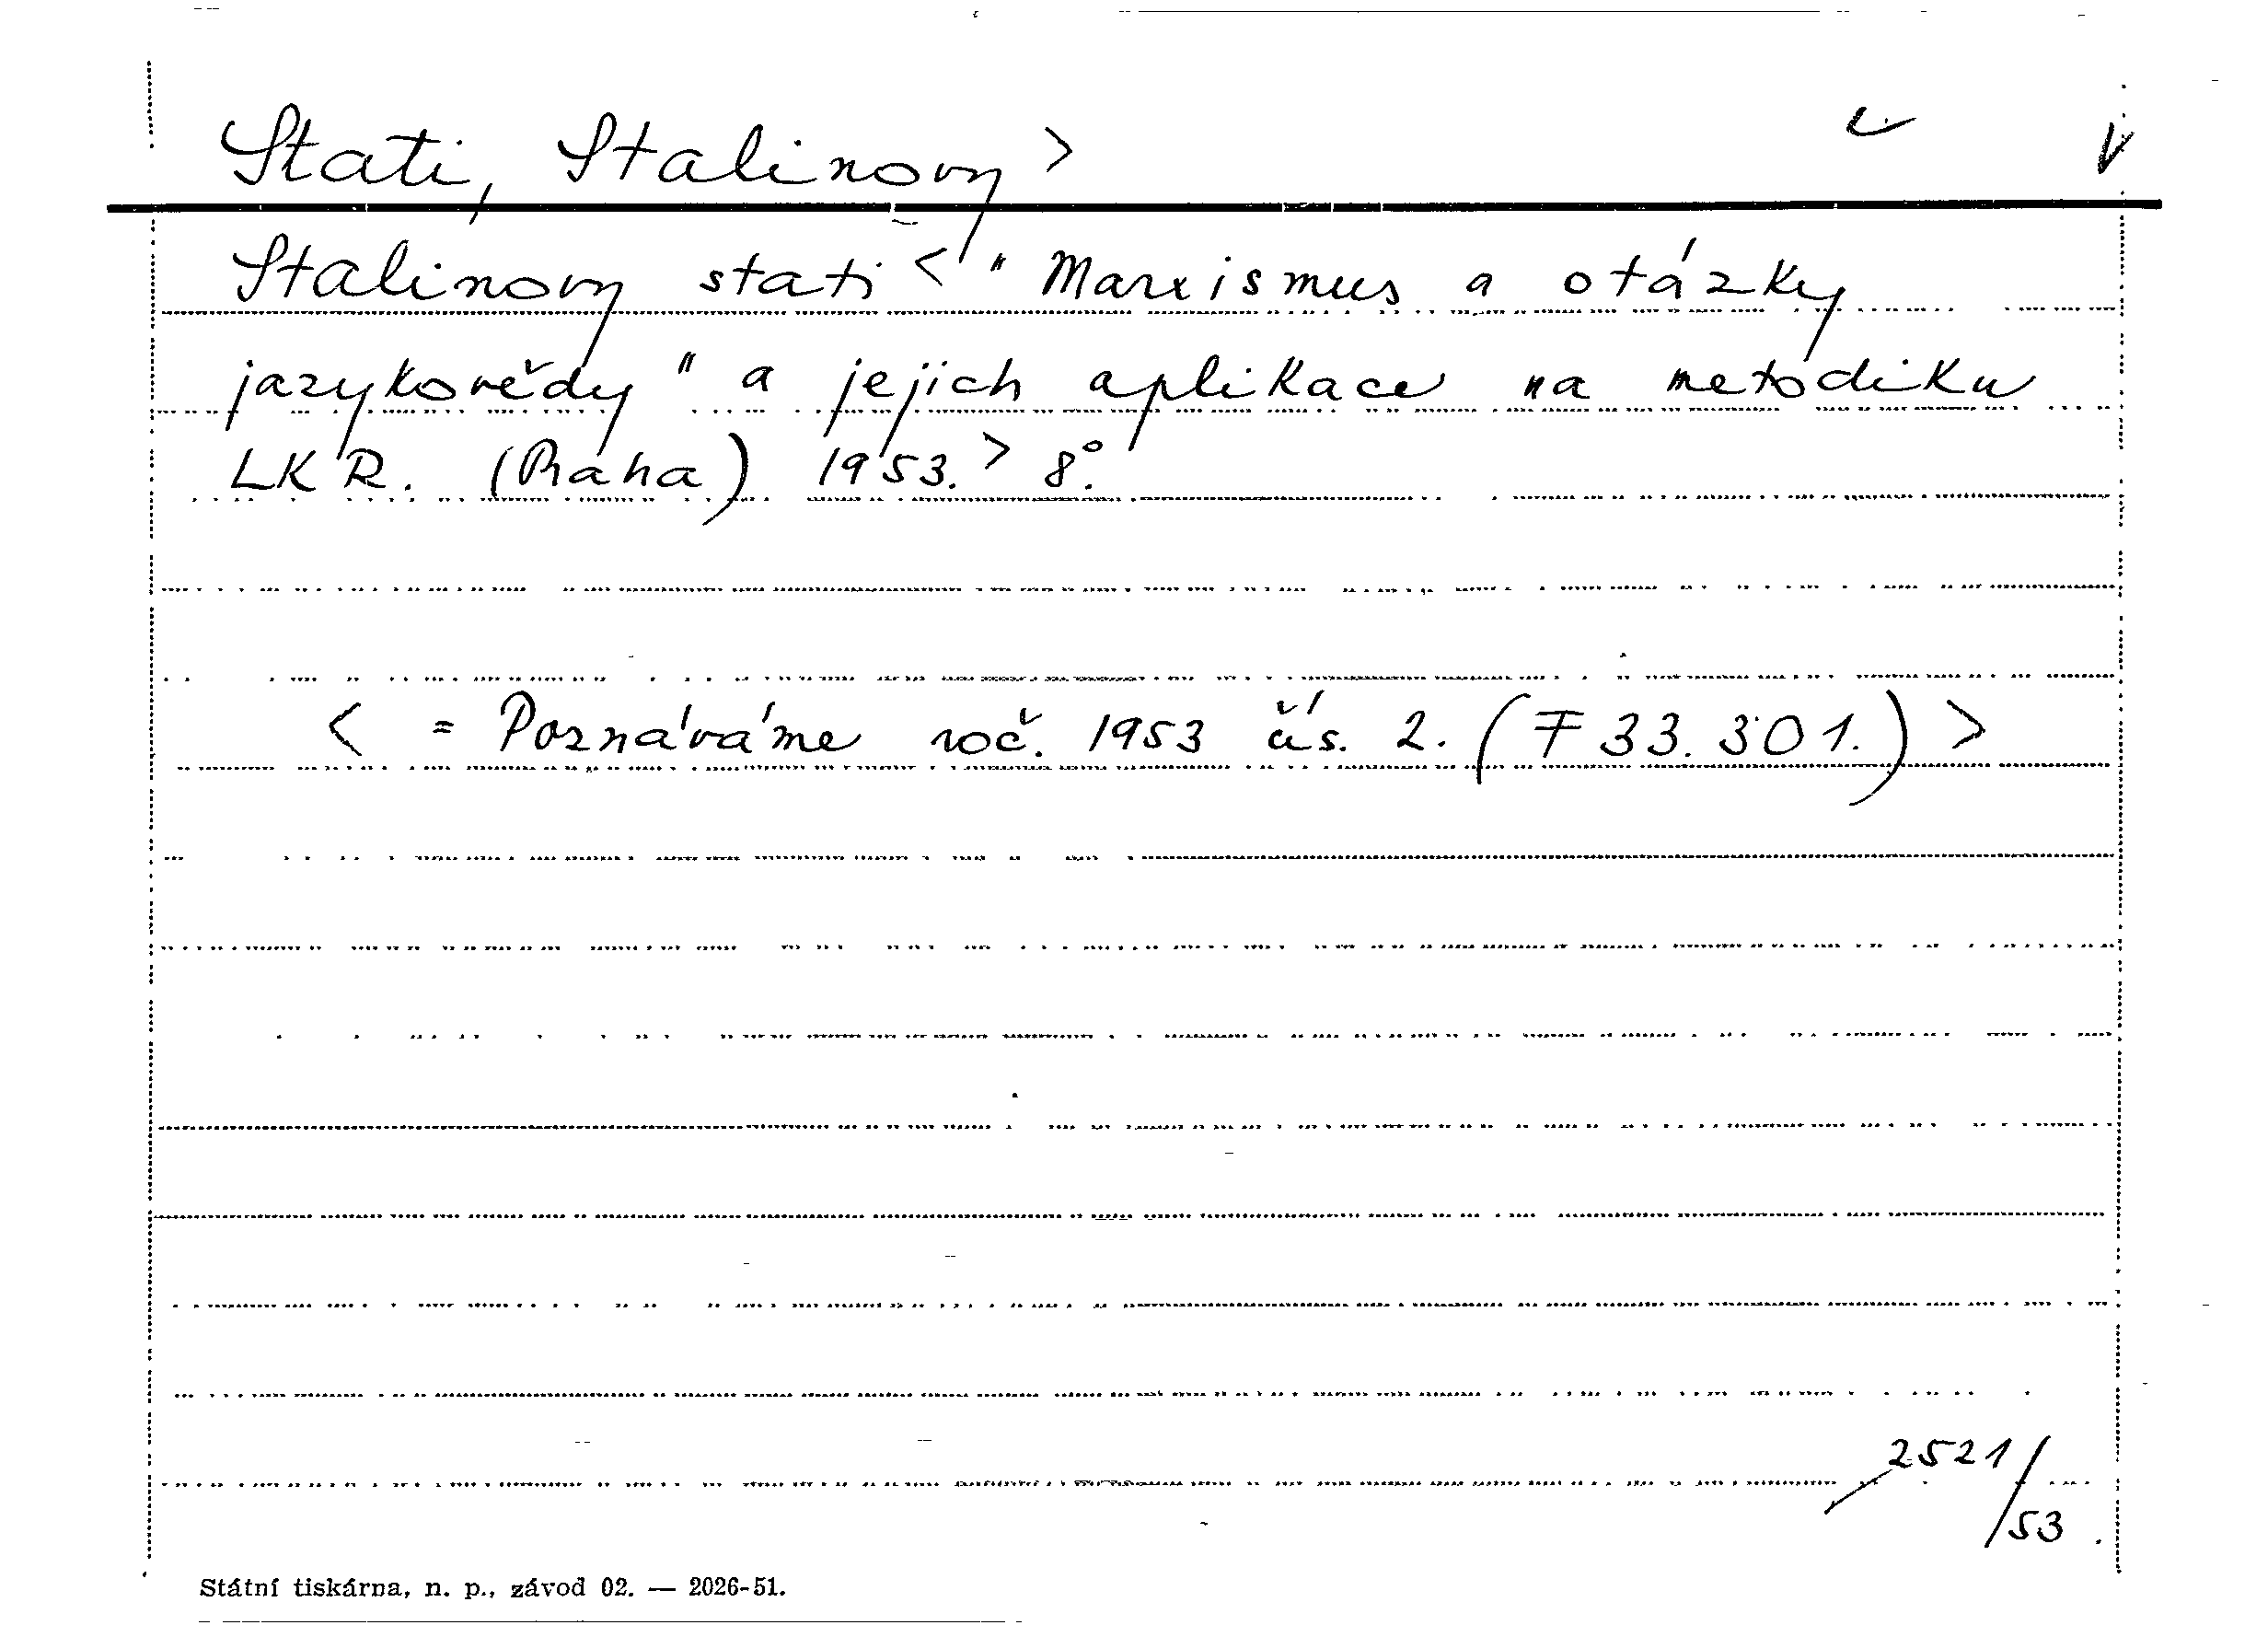 Stati, Stalinovy >
Stalinovy stati < "Marxismus a otázky
jazykovědy" a jejich aplikace na metodiku
LKR. (Praha) 1953. > 8°.
< = Poznáváme roč. 1953 čís. 2. (F 33.301.) >
2521/
/53.
Státní tiskárna, n. p., závod 02. — 2026-51.